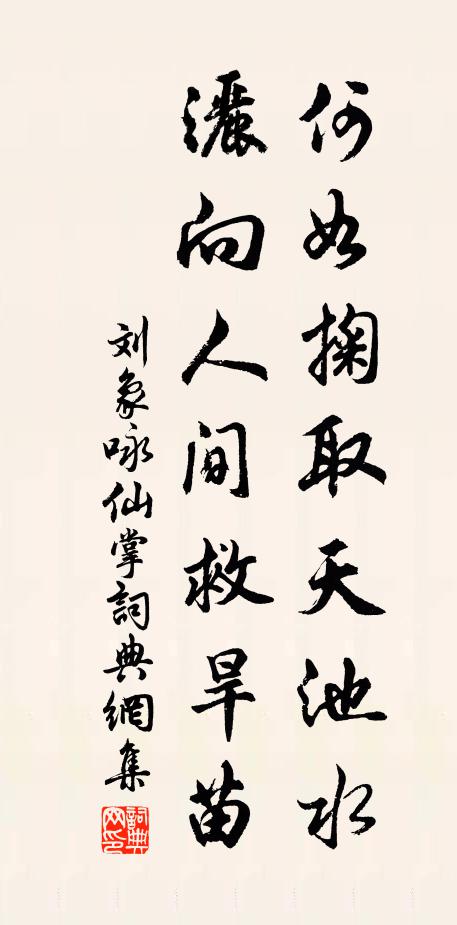 何如掬取天池水
灑向人間救旱苗
刘象咏仙掌詞典網集
詞典網印